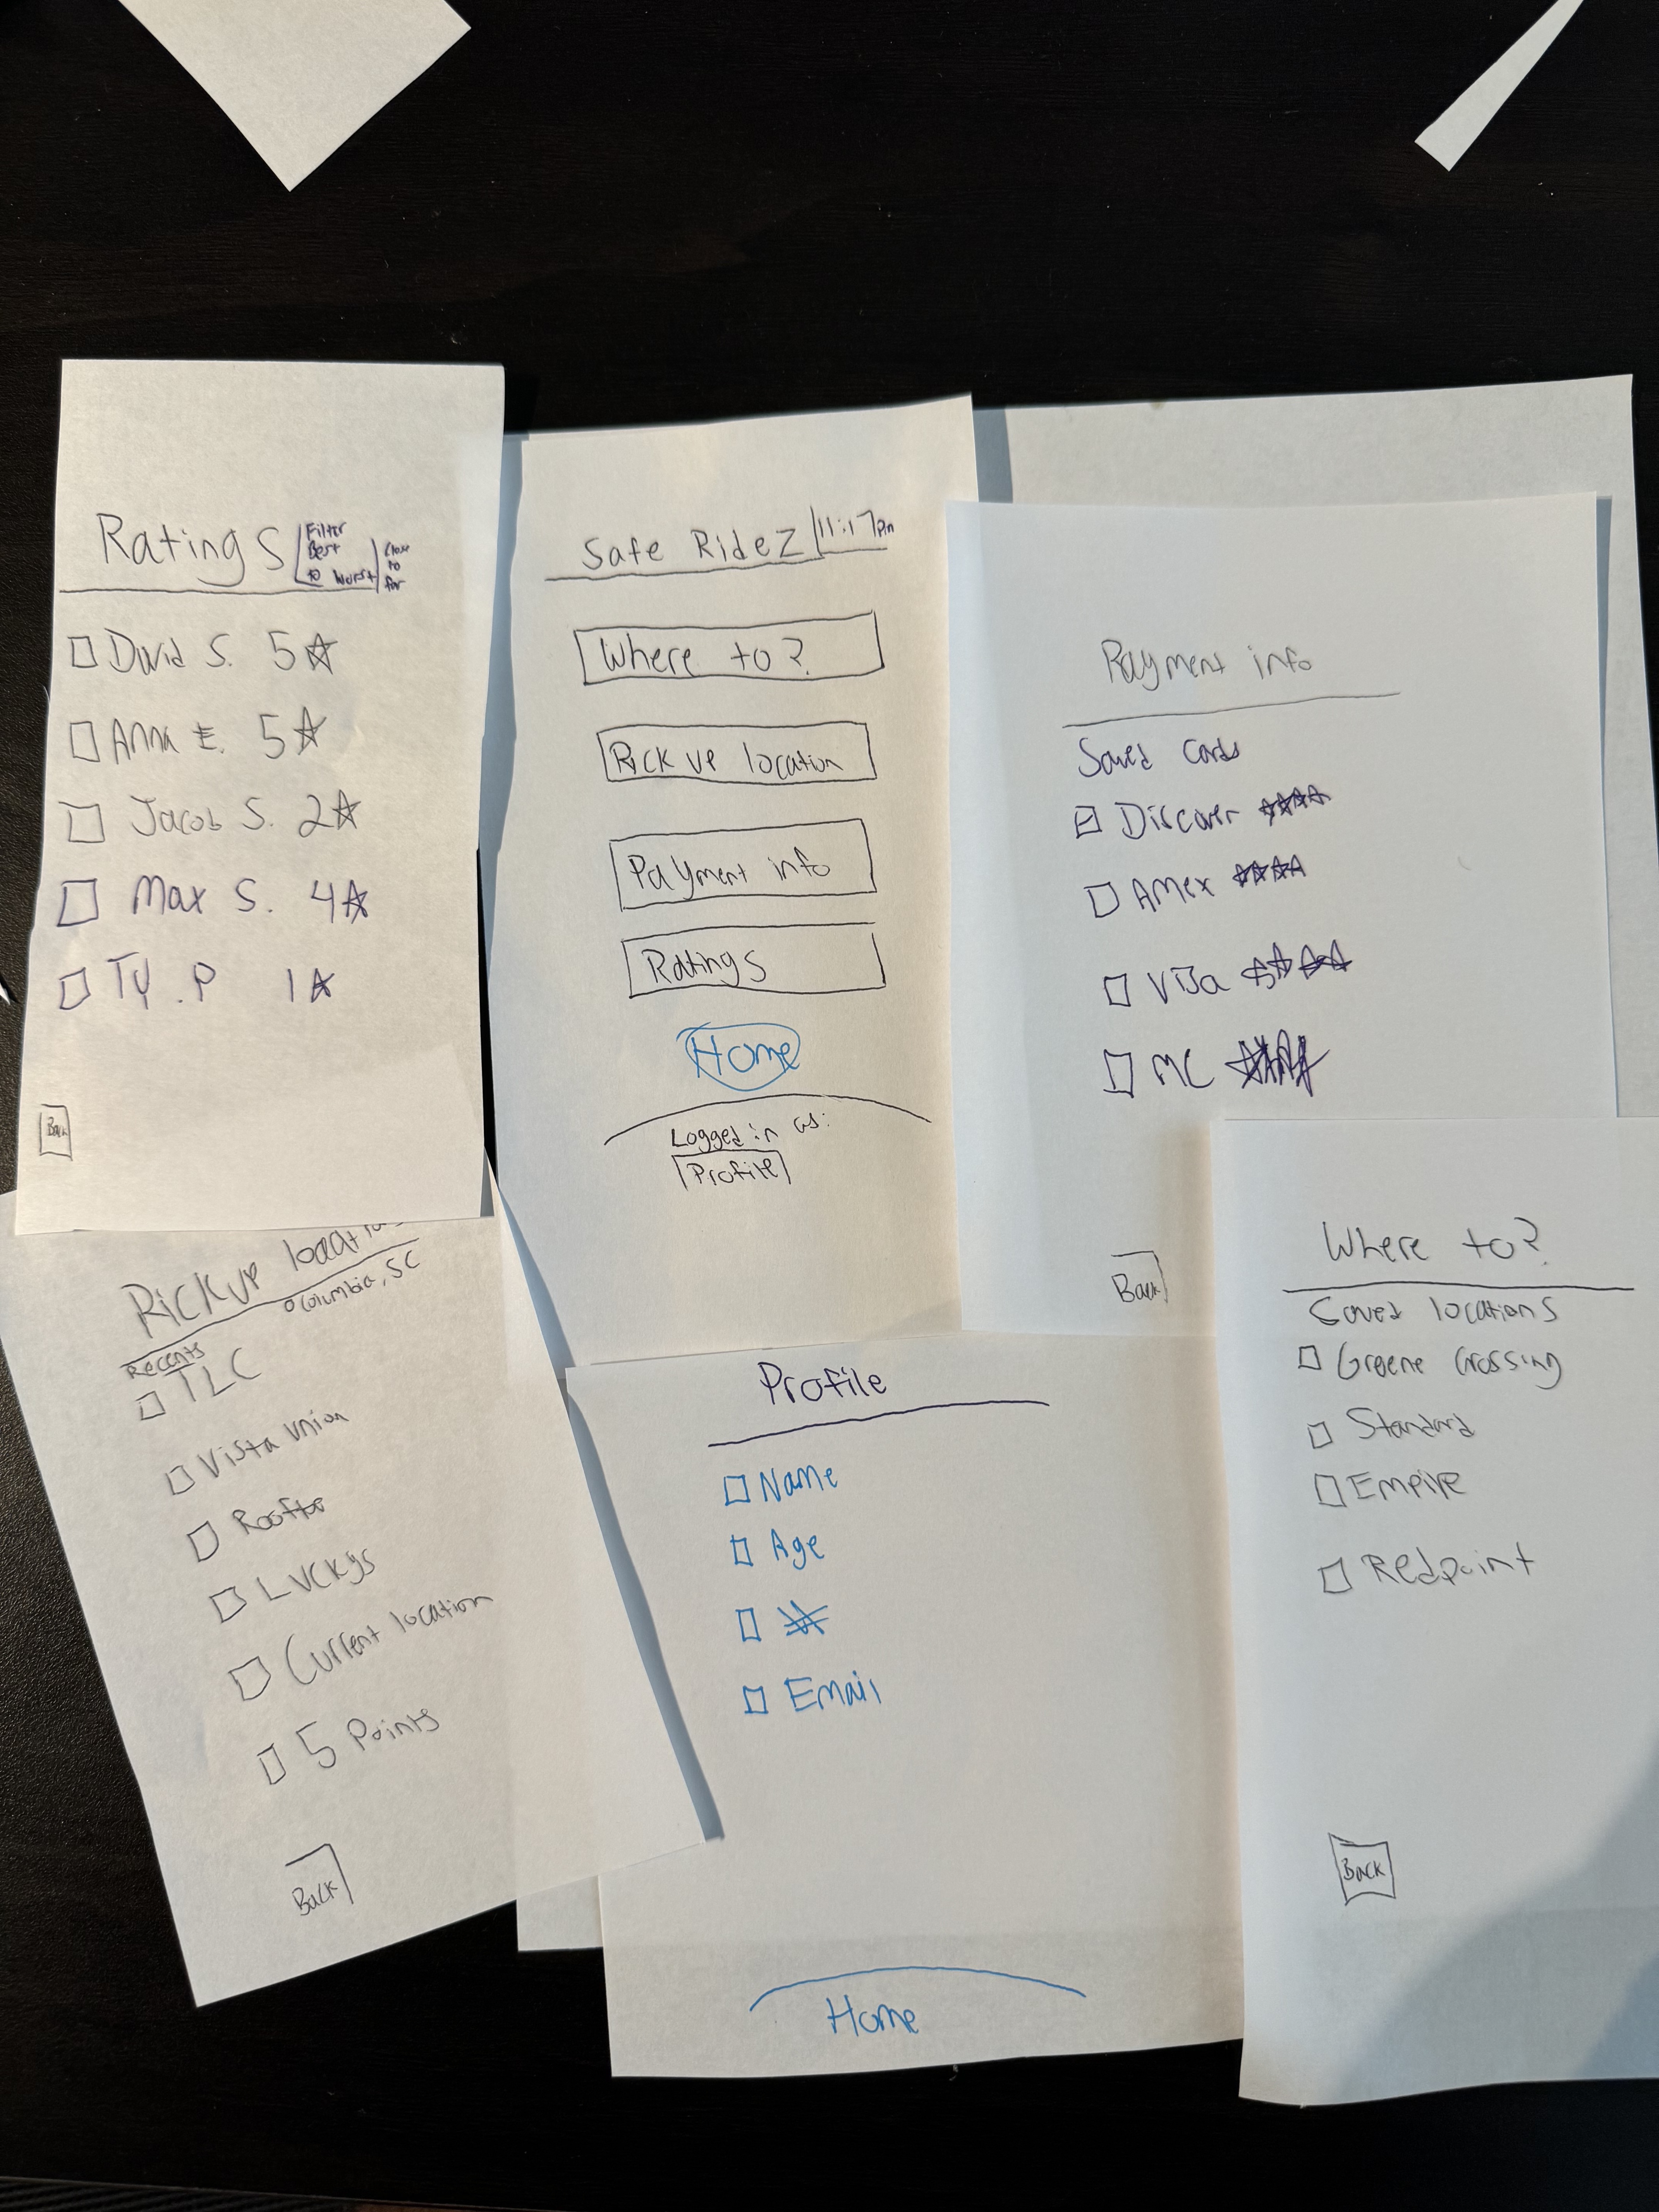 Ratings
Filter
Best
to Worst
Close
to
far
David S. 5☆
Anna E. 5☆
Jacob S. 2☆
Max S. 4☆
Ty .P 1☆
Back
Safe Ridez 11:17pm
Where to?
Pick up location
Payment info
Ratings
Home
Logged in as:
Profile
Payment info
Saved Cards
Discover ☆☆☆☆
Amex ☆☆☆☆
Visa ☆☆☆☆
MC ☆☆☆☆
Back
Pickup locations
Columbia, SC
Recents
TLC
Vista Union
Rooftop
Luckys
Current location
5 Points
Back
Profile
Name
Age
#
Email
Home
Where to?
Saved locations
Greene Crossing
Standard
Empire
Redpoint
Back